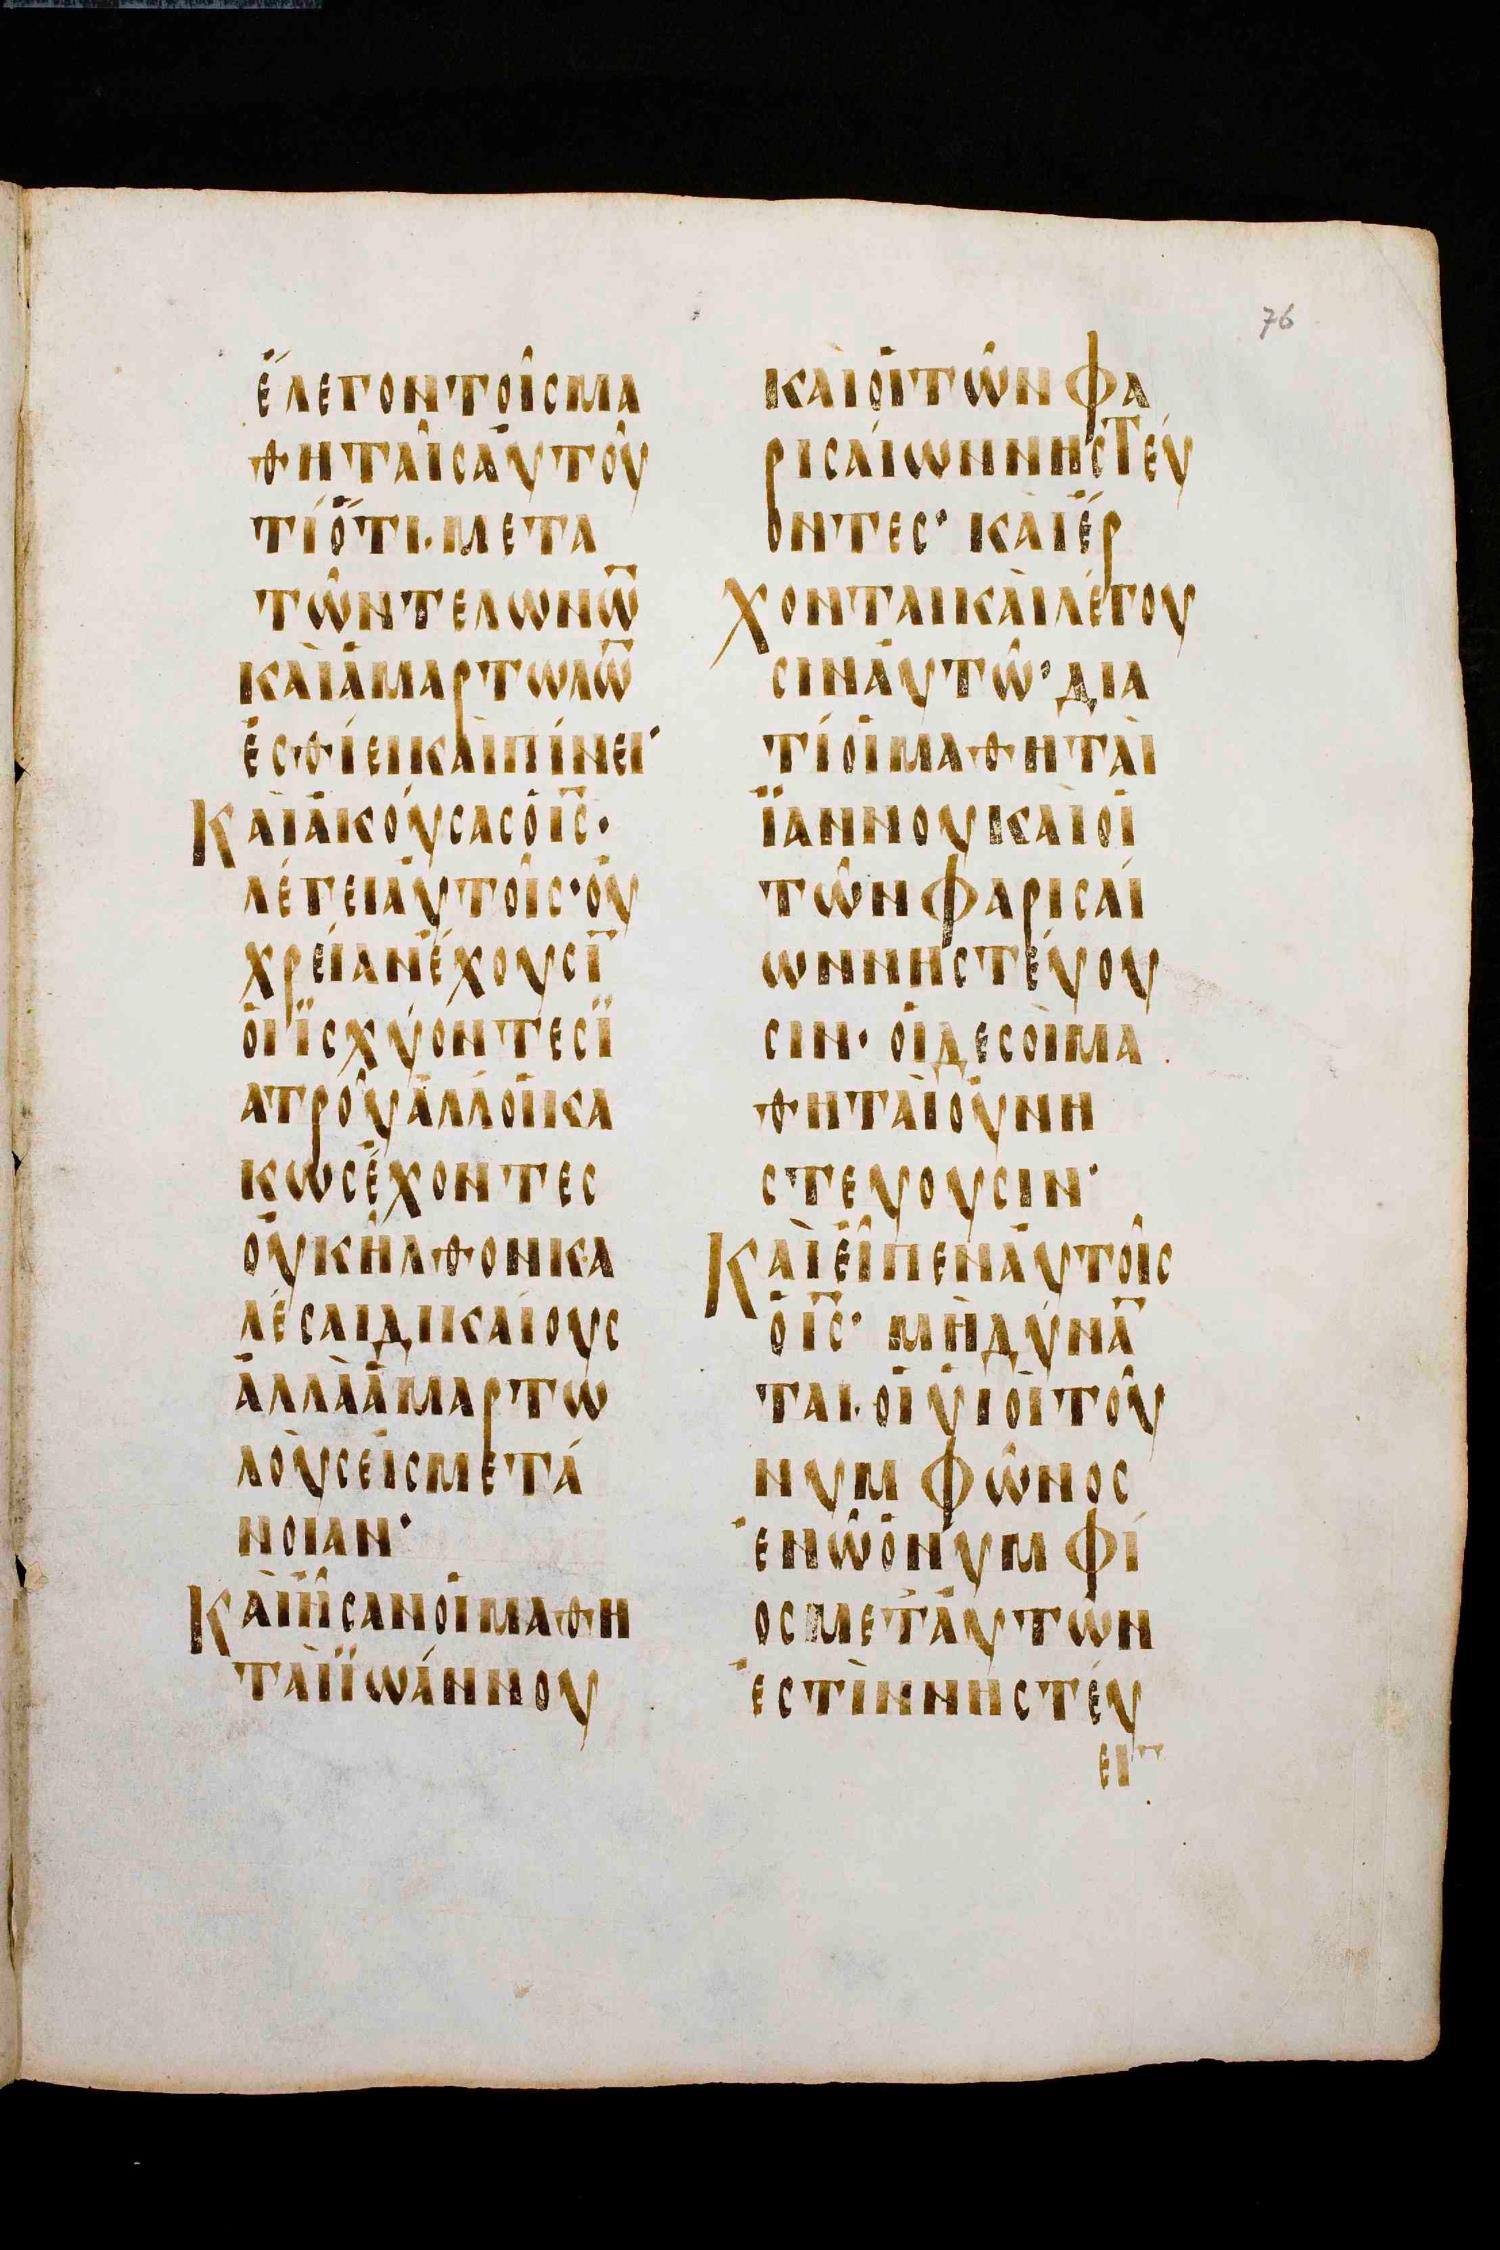 76
ἔλεγον τοῖς μα
θηταῖς αὐτοῦ
τί ὅτι· μετα
τῶν τελωνω̅
καὶ ἁμαρτωλω̅
ἐσθίει καὶ πίνει·
Καὶ ἀκούσας ὁ ι̅ς̅·
λέγει αὐτοῖς· οὐ
χρείαν ἔχουσι̅
οἱ ἰσχύοντες ϊ
ατροῦ ἀλλ οἱ κα
κωσ ἔχοντες
οὐκ ἦλθον κα
λέσαι δικαίους
ἀλλὰ ἁμαρτω
λοὺς εἰς μετά
νοιαν·
Καὶ ἦσαν οἱ μαθη
ταὶ ϊωάννου
καὶ οἱ τῶν φα
ρισαίων νηστεύ
οντες· καὶ ἔρ
χονται καὶ λέγου
σιν αὐτῶ· δια
τί οἱ μαθηταὶ
ϊαννου καὶ οἱ
τῶν φαρισαί
ων νηστεύου
σιν· οἱ δε σοὶ μα
θηταὶ οὐ νη
στευουσιν·
Καὶ εἶπεν αὐτοῖς
ὁ ι̅ς̅· μὴ δύνα̅
ται· οἱ υἱοὶ τοῦ
νυμφῶνος
ἐν ὧ ὁ νυμφί
ος μετ αὐτων
ἐστὶν νηστεύ
ει̅